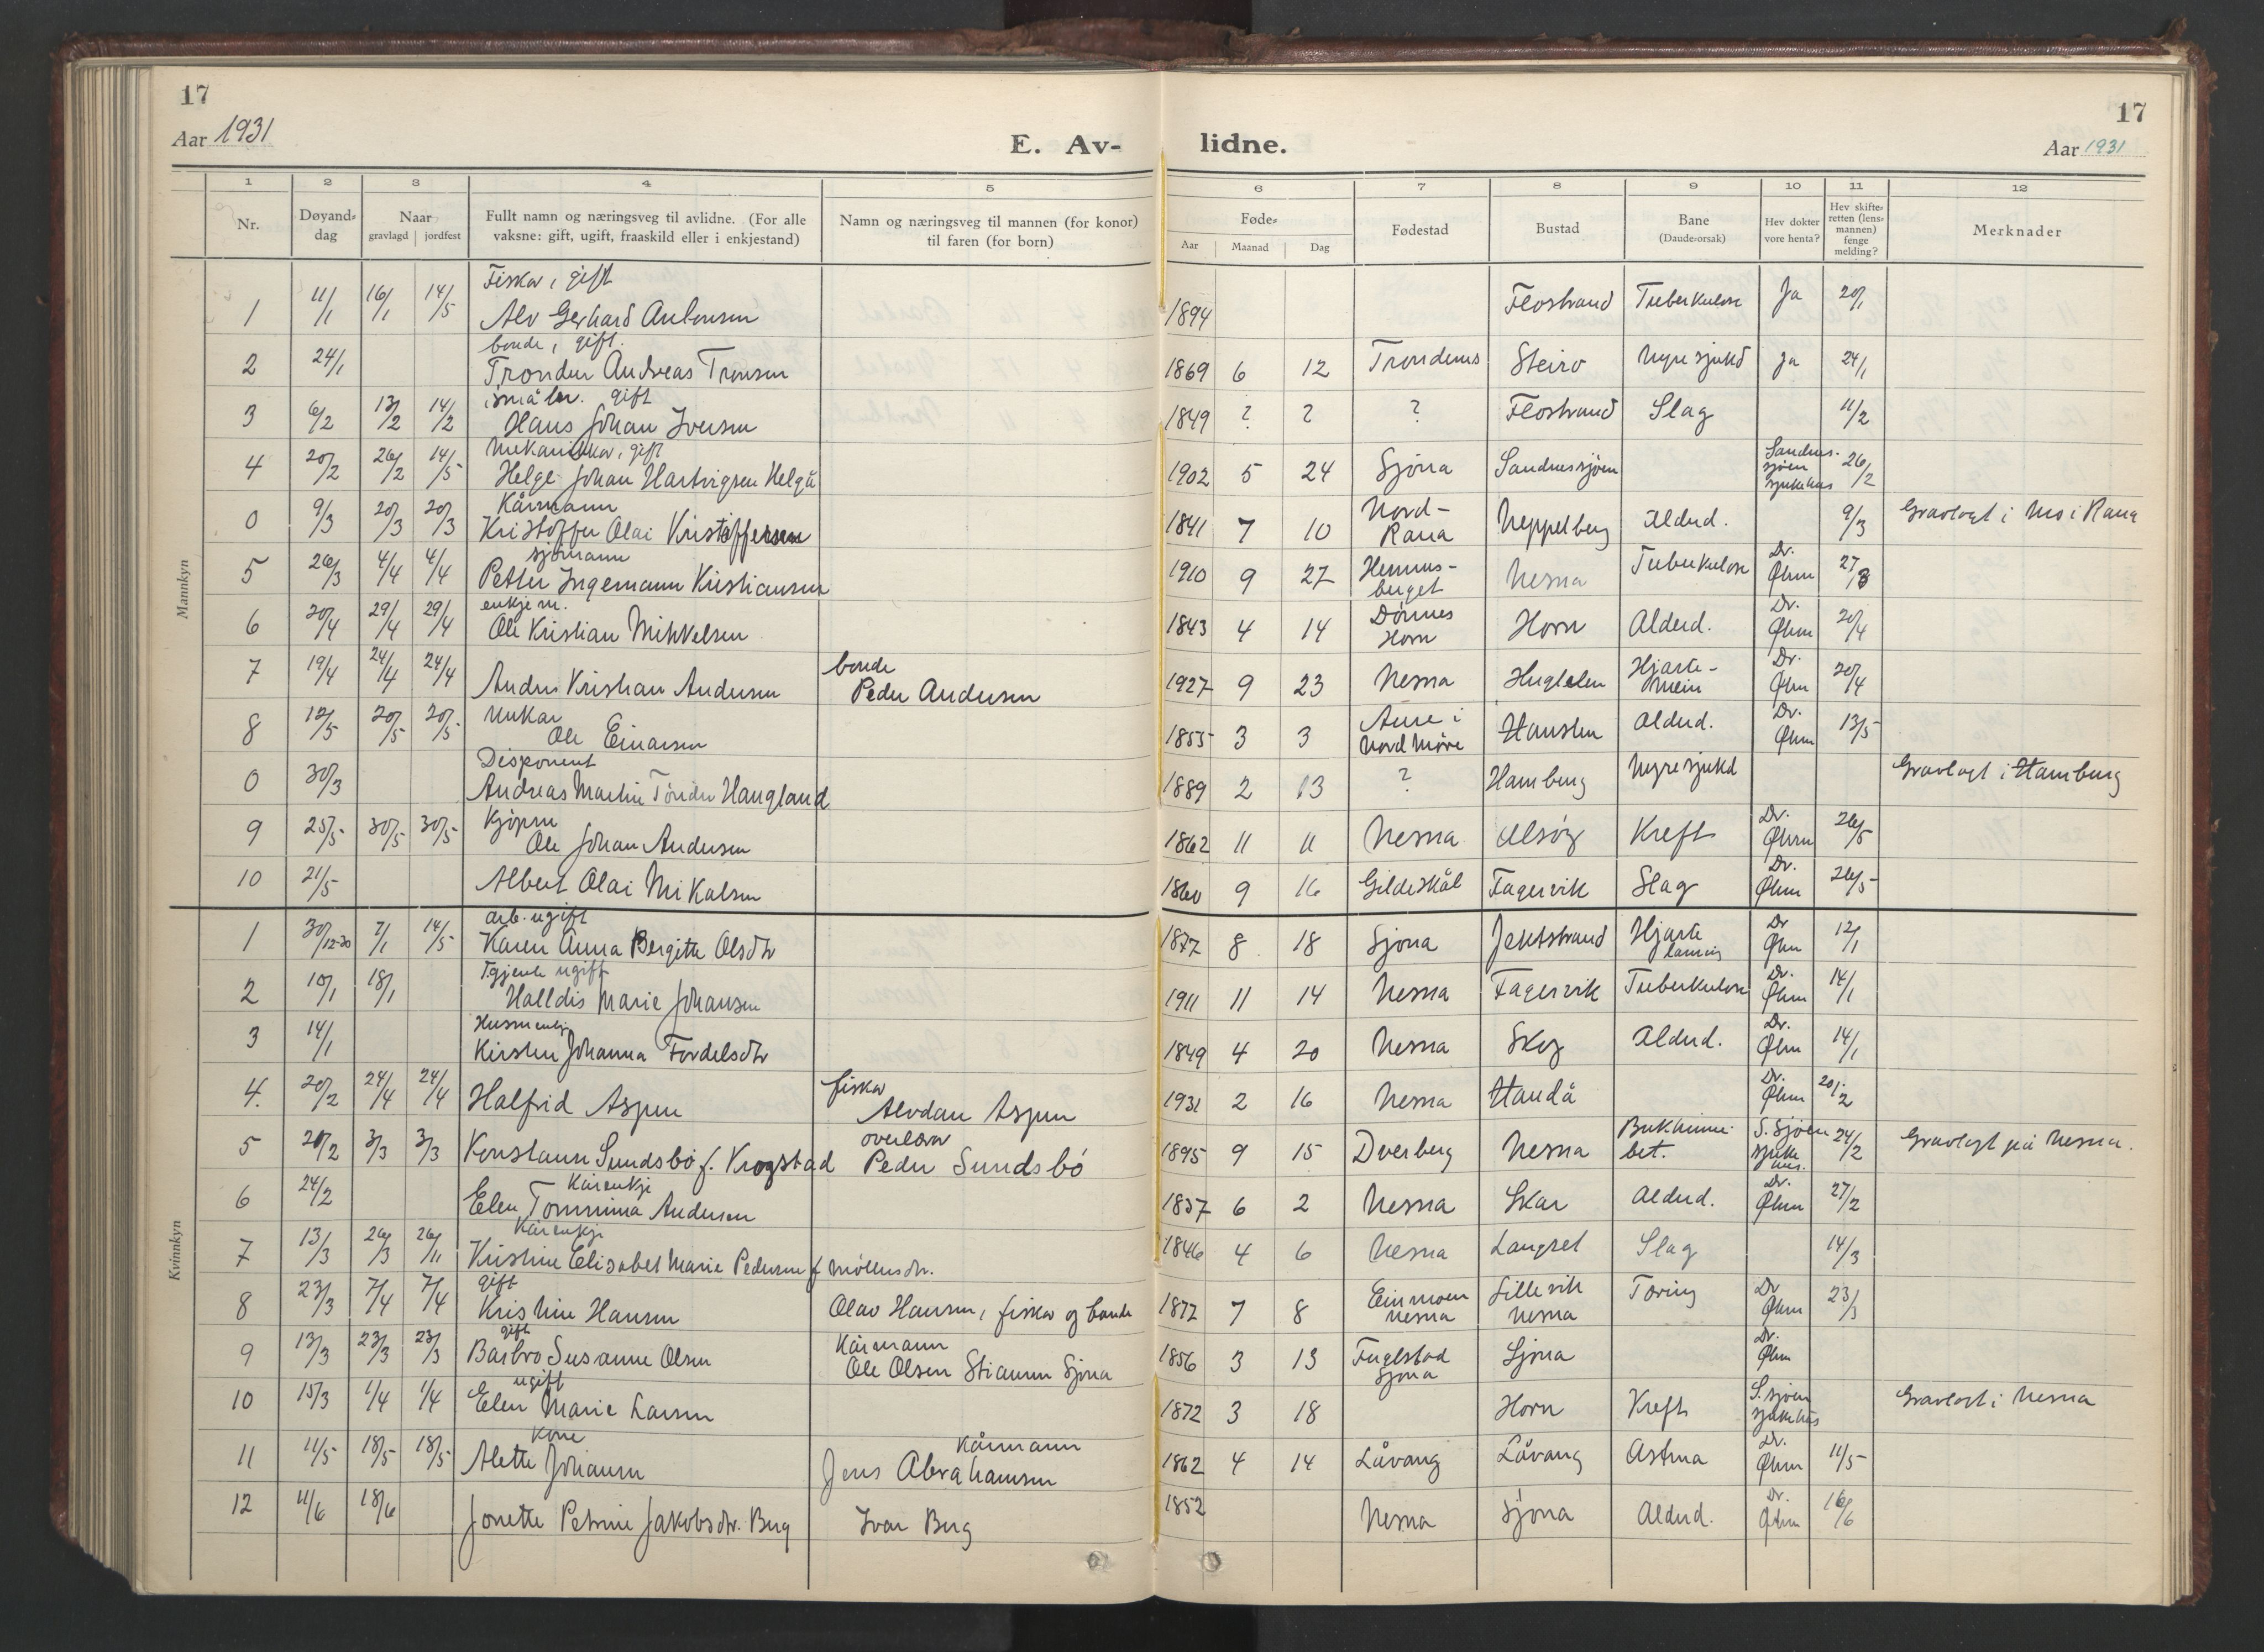 17
Aar 1931
E. Av-
1 2 3 4 5
Nr. Døyand-dag Naar gravlagd jordfest Fullt namn og næringsveg til avlidne. (For alle vaksne: gift, ugift, fraaskild eller i enkjestand) Namn og næringsveg til mannen (for konor) til faren (for born)
Mannkyn
Fiskar, gift
1 11/1 16/1 14/5 Alv Gerhard Antonsen
bonde, gift.
2 24/1 Tronder Andreas Tronsen
småbr. gift
3 6/2 13/2 14/2 Hans Johan Iversen
Mekanikar, gift
4 20/2 26/2 14/5 Helge Johan Hartvigsen Helgå
Kårmann
0 9/3 20/3 20/3 Kristoffer Olai Kristoffersen
sjømann
5 26/3 4/4 4/4 Petter Ingemann Kristiansen
enkjem.
6 20/4 29/4 29/4 Ole Kristian Mikkelsen
bonde
7 19/4 24/4 24/4 Anders Kristian Andersen Peder Andersen
8 12/5 20/5 20/5 Ole Einarsen
Disponent
0 30/3 Andreas Martin Tönder Haugland
Kjøpm
9 25/5 30/5 30/5 Ole Johan Andersen
10 21/5 Albert Olai Mikalsen
Kvinnkyn
arb. ugift
1 30/12-30 7/1 14/5 Karen Anna Bergitte Olsdtr
Tgjente ugift
2 10/1 18/1 Halldis Marie Johansen
Husm enkje
3 14/1 Kirsten Johanna Fordelsdtr
fiskar
4. 20/2 24/4 24/4 Halfrid Aspen Alvdan Aspen
overlærar
5 20/2 3/3 3/3 Konstanse Sundsbö f. Krogstad Peder Sundsbö
Kårenkje
6 24/2 Elen Tommina Andersen
Kårenkje
7 13/3 26/3 26/11 Kristine Elisabet Marie Pedersen f. Möllersdtr.
gift
8 23/3 7/4 7/4 Kristine Hansen Olav Hansen, fiskar og bonde
gift Kårmann
9 13/3 23/3 23/3 Barbro Susanne Olsen Ole Olsen Stiauren Sjona
ugift
10 15/3 1/4 1/4 Elen Marie Larsen
Kone Kårmann
11 11/5 18/5 18/5 Alette Johansen Jens Abrahamsen
12 11/6 18/6 Jonette Petrine Jakobsdtr. Berg Ivar Berg
17
lidne.
Aar 1931
6 7 8 9 10 11 12
Føde- Aar Maanad Dag Fødestad Bustad Bane (Daudsorsak) Hev dokter vore henta? Hev skifteretten (lensmannen) fenge melding? Merknader
1894 Flostrand Tuberkulose Ja 20/1
1869 6 12 Trondenes Steiro Nyresjukd ja 24/1
1849 ? ? ? Flostrand Slag 11/2
1902 5 24 Sjona Sandnessjøen Sandnessjøen sjukehus 26/2
1841 7 10 Nord-Rana Neppelberg Alderd. 9/3 Gravlagt i Mo i Rana
1910 9 27 Hemnesberget Nesna Tuberkulose Dr. Øhrn 27/3
1843 4 14 Dönnes Horn Horn Alderd. Dr. Øhrn 20/4
1927 9 23 Nesna Huglelen Hjarte-mein Dr. Øhrn 20/4
1855 3 3 Aure i Nordmøre Hanslen Alderd. Dr. Øhrn 13/5
1889 2 13 ? Hamburg Nyresjukd Gravlagt i Hamburg
1862 11 11 Nesna Alsöy Kreft Dr. Øhrn 26/5
1860 9 16 Gildeskål Fagervik Slag Dr. Øhrn 26/5
1877 8 18 Sjona Jektstrand Hjarte laming Dr Øhrn 12/1
1911 11 14 Nesna Fagervik Tuberkulose Dr. Øhrn 14/1
1849 4 20 Nesna Skog Alderd. Dr. Øhrn 14/1
1931 2 16 Nesna Handå Dr. Øhrn 20/2
1895 9 15 Dverberg Nesna Bukhinne-bet. S. Sjøen sjukehus. 24/2 Gravlagt på Nesna.
1837 6 2 Nesna Skar Alderd. Dr. Øhrn 27/2
1846 4 6 Nesna Langset Slag 14/3
1872 7 8 Einmoen Nesna Lillevik Nesna Tæring Dr Øhrn 23/3
1856 3 13 Fuglstad Sjona Sjona Dr. Øhrn
1872 3 18 Horn Kreft S. sjøen sjukehus Gravlagt i Nesna
1862 4 14 Låvang Låvang Astma Dr. Øhrn 11/5
1852 Nesna Sjona Alderd. Dr. Øhrn 16/6